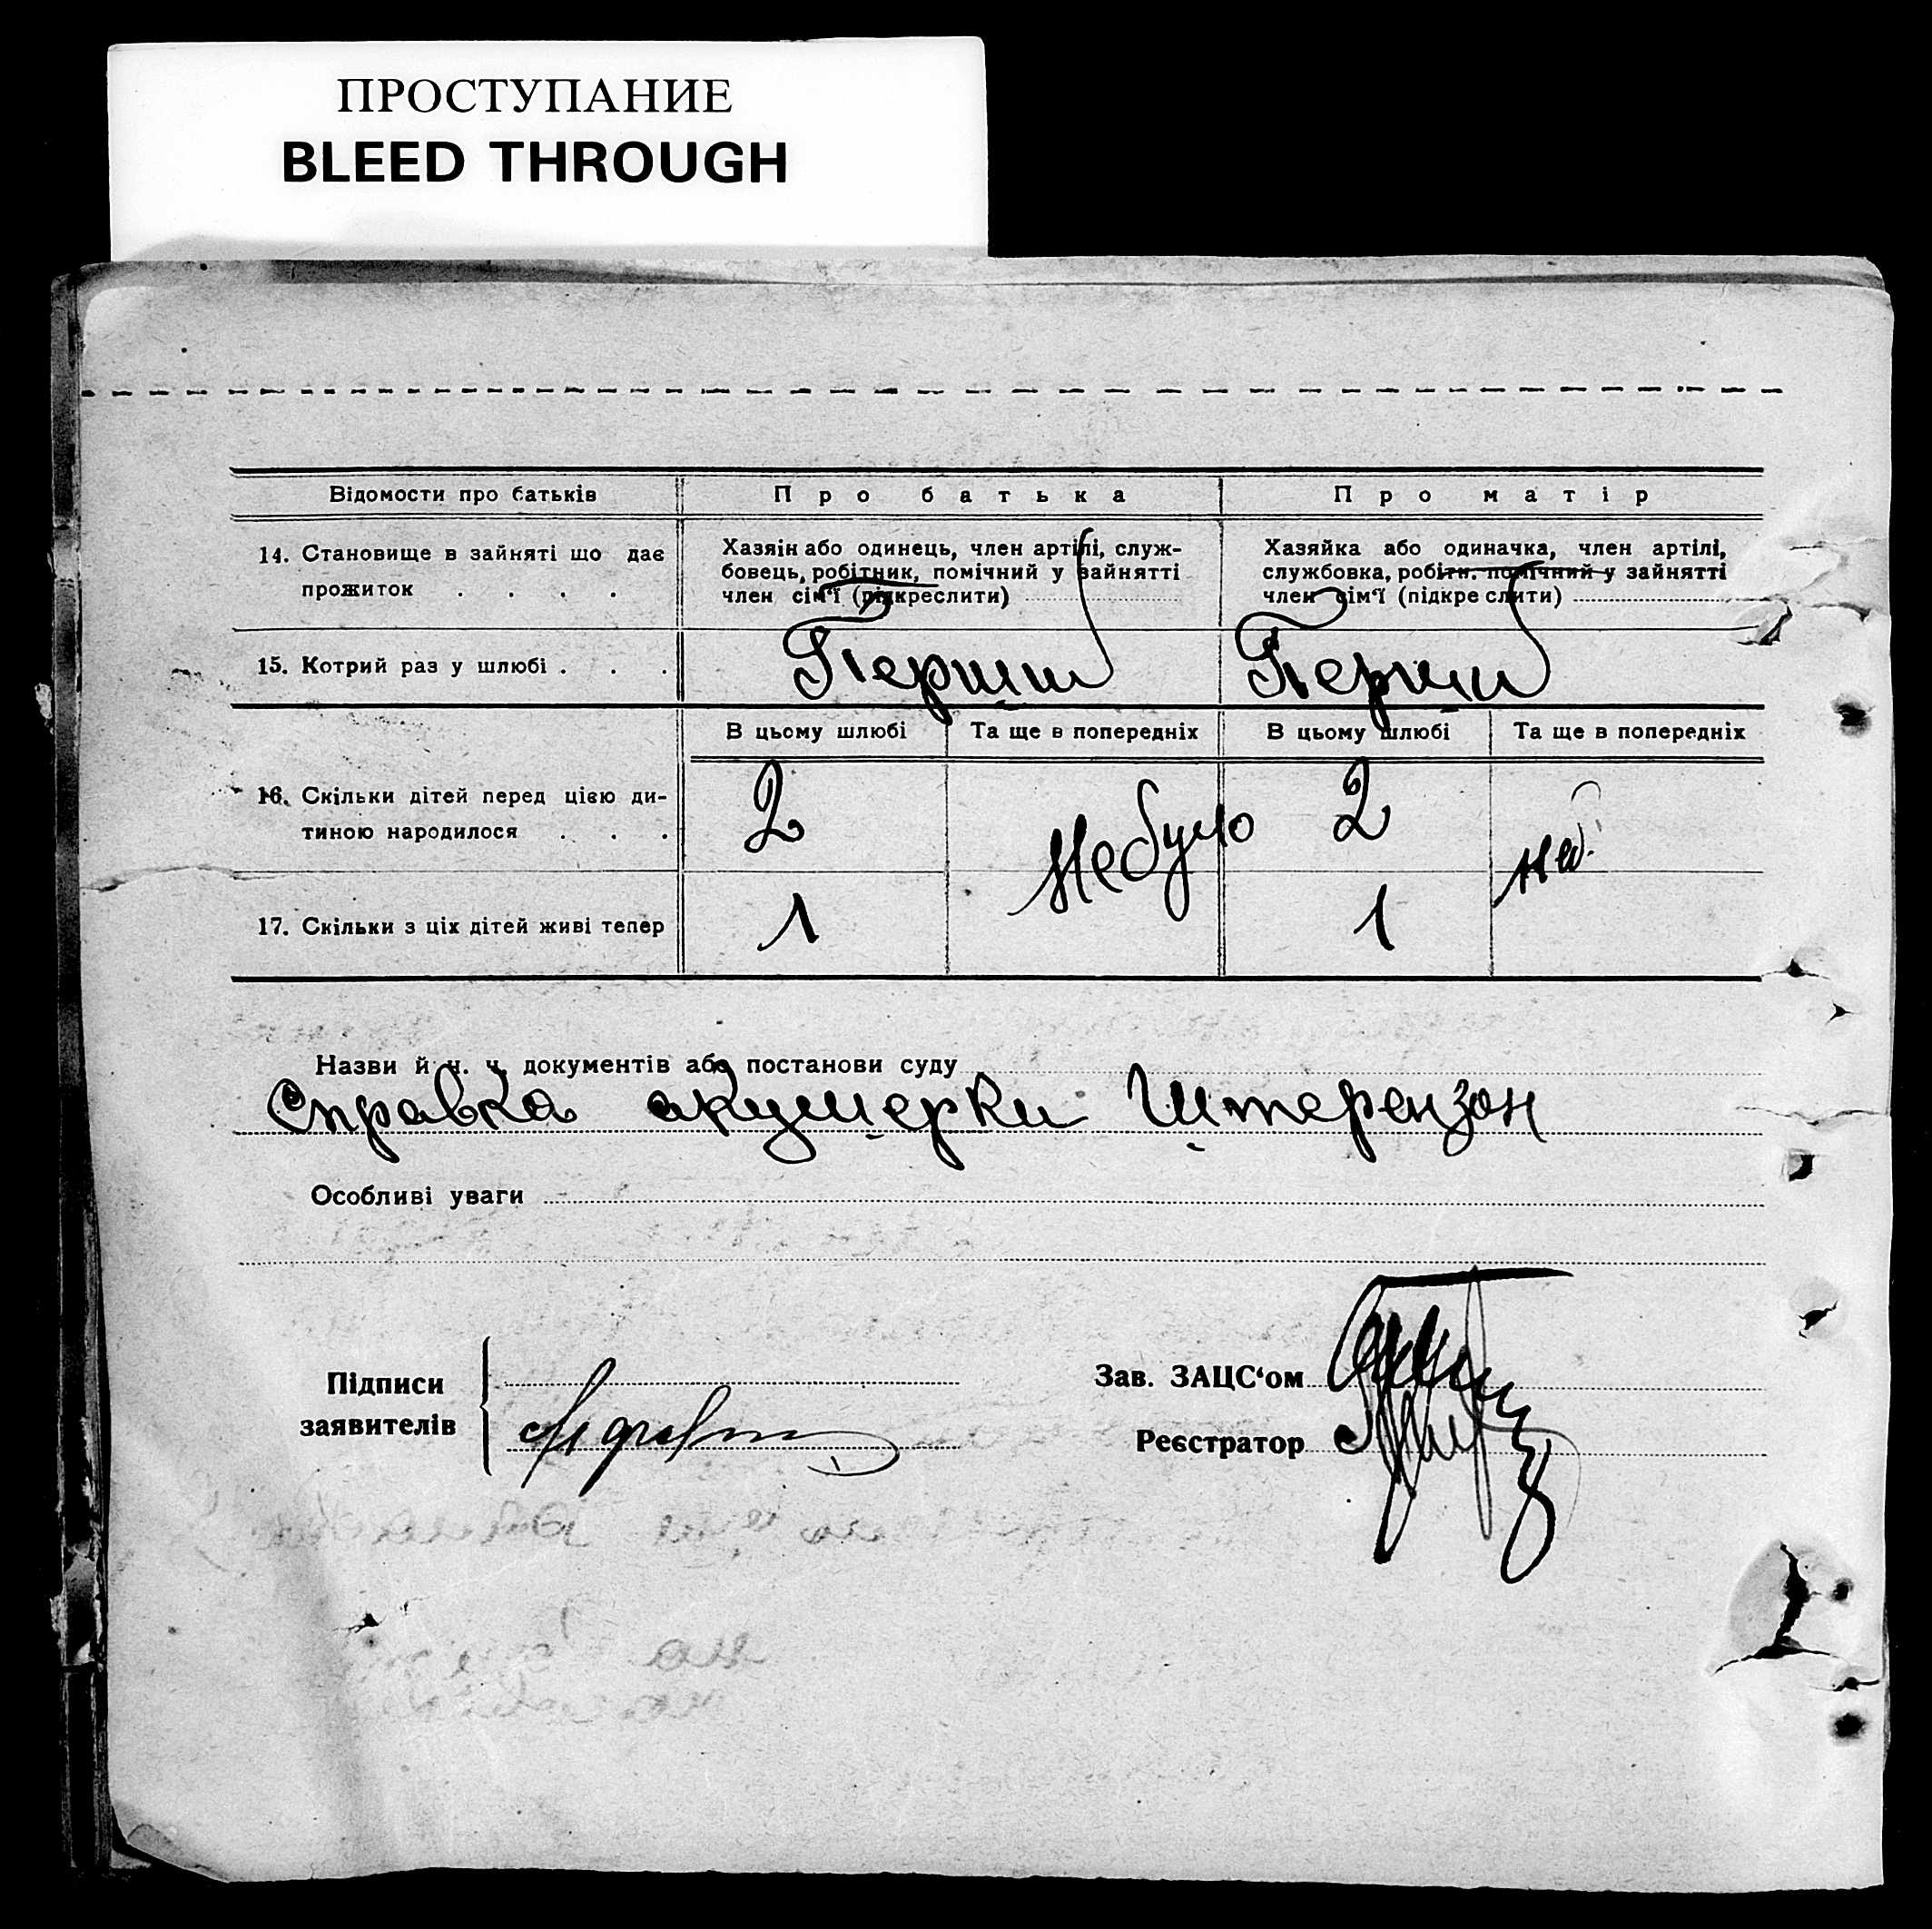 ПРОСТУПАНИЕ
BLEED THROUGH
Відомости про батьків
Про батька
Про матір
14. Становище в зайняті що дає
прожиток . . . .
Хазяін або одинець, член артілі, служ-
бовець, робітник, помічний у зайнятті
член сім'ї (підкреслити)
Хазяйка або одиначка, член артілі,
службовка, робітн. помічний у зайнятті
член сім'ї (підкреслити)
15. Котрий раз у шлюбі . . .
Перший
Перший
В цьому шлюбі
Та ще в попередніх
В цьому шлюбі
Та ще в попередніх
16. Скільки дітей перед цією ди-
тиною народилося . . .
2
Небуло
2
Неб.
17. Скільки з ціх дітей живі тепер
1
1
Назви й ч. ч. документів або постанови суду
Справка акушерки Штерензон
Особливі уваги
Підписи
заявителів
Зав. ЗАЦС‘ом
Реєстратор